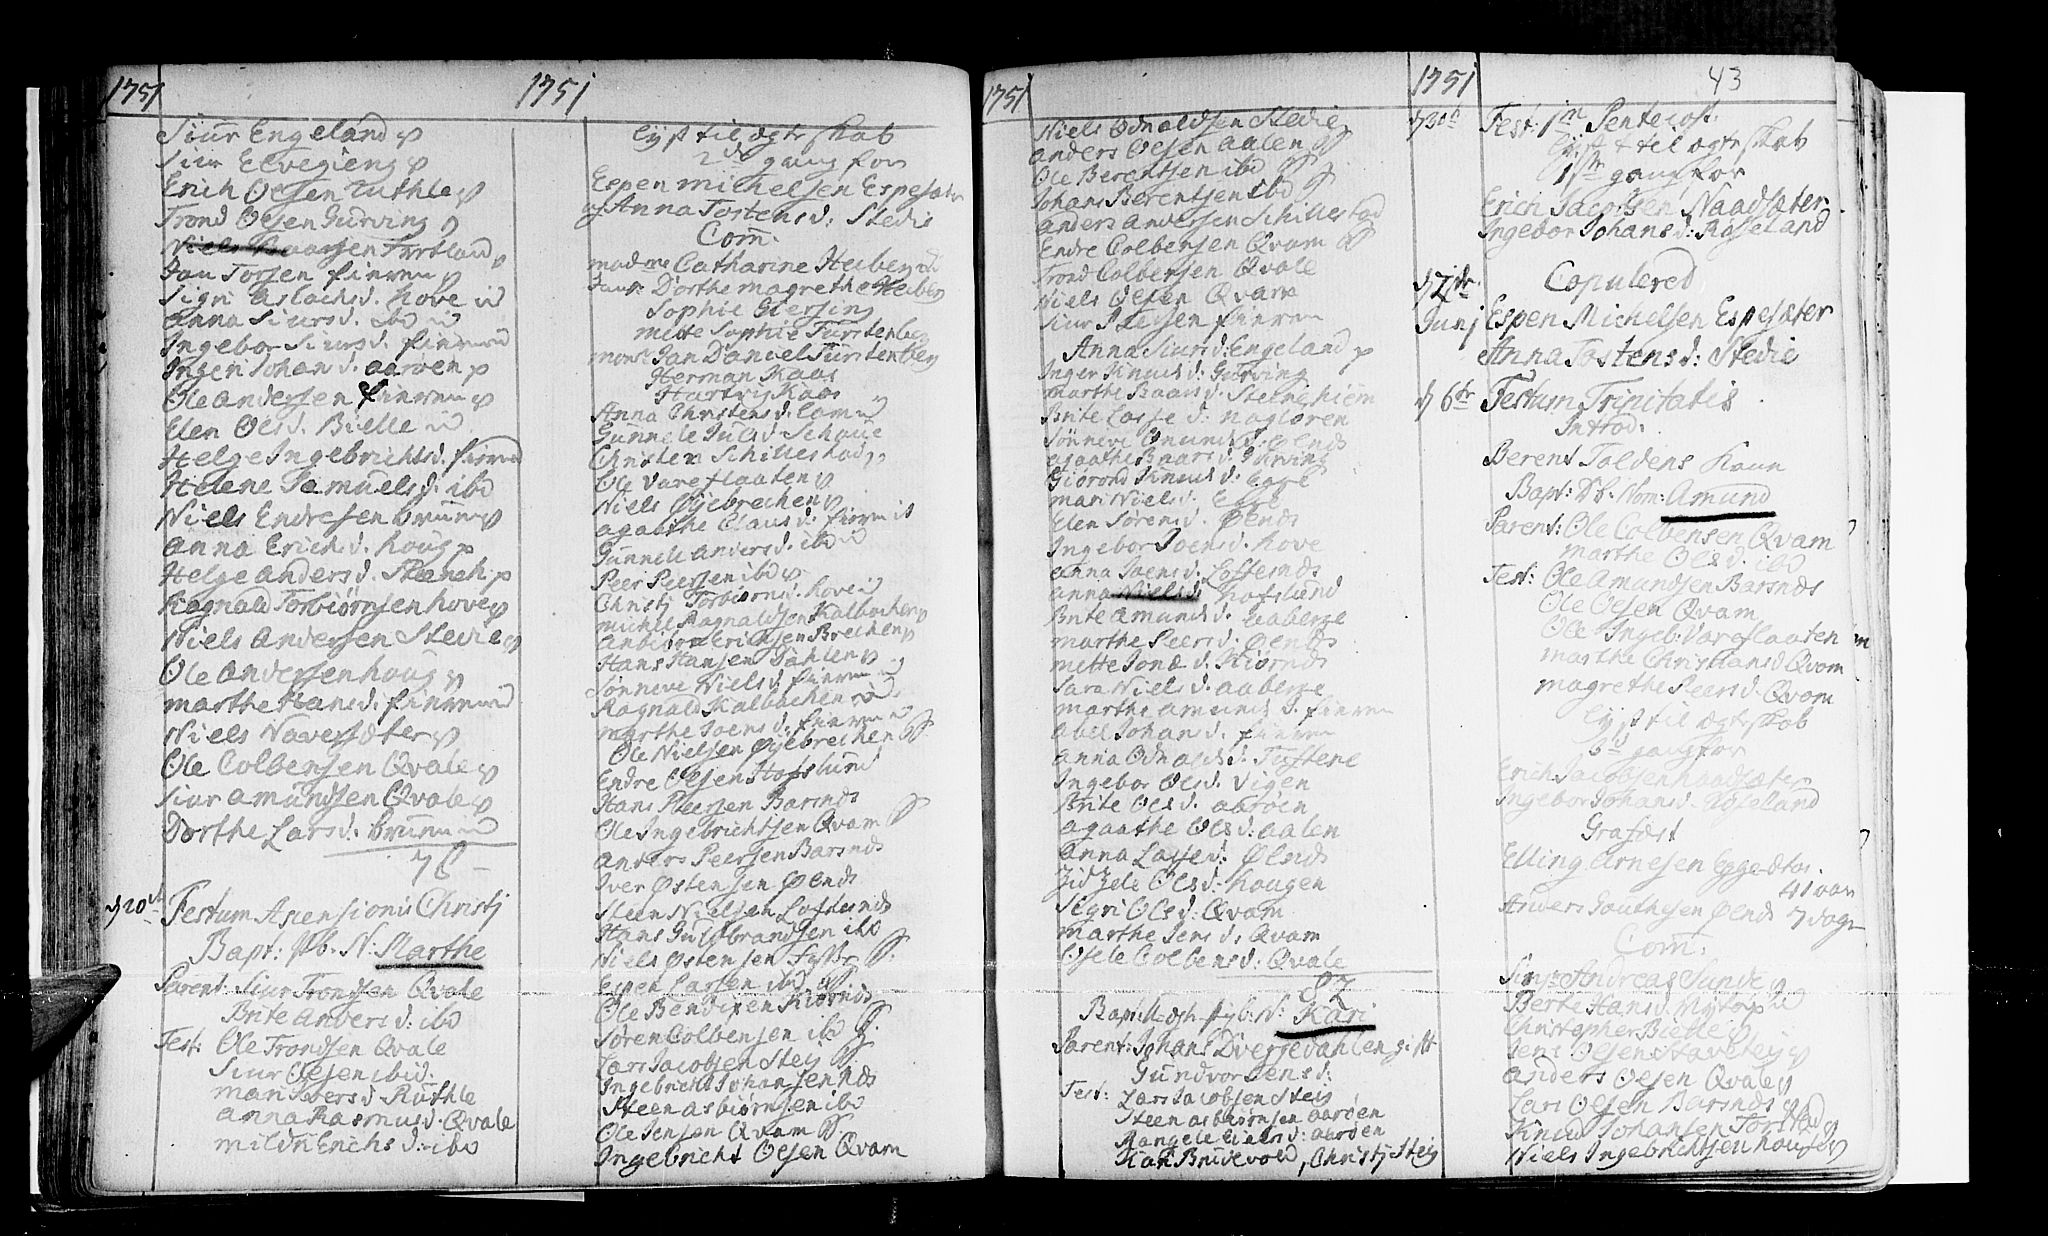 1751
Siur Engeland
Siur Elvegieng
Erich Olsen Ruthle
Trond Olsen Gurving
Niels Baarsen Furtland
Jan Torsen finren
Sigri Aslachsd. hove
Anna Siursd. ibd
Ingebor Siursd. finren
Inger Johansd. aaroen
Ole andersen finren
Elen Olsd. Bielle
Helge Ingebrichtsd. finren
Helene Samuelsd. ibd
Niels Endresen bruun
Anna Erichsd. houg
Helge anders d. Steeneh
Ragnald Torbiørnsen hove
Niels Andersen Stedie
Ole Andersen houg
marthe Hansd. finren
Niels Naversæter
Ole Colbensen Qvale
Siur amundsen Qvale
Dorthe Larsd. bruun
78
d 20de Festum Ascensionis Christj
Bapt: Pb. N: Marthe
Parent: Siur Trondsen Qvale
Brite Andersd: ibd
Test: Ole Trondsen Qvale
Siur Olsen ibid:
mari Iversd Ruthle
anna Rasmusd. Qvale
mildri Erichsd: ibd
1751
lyst til ægteskab
2den gang for
Espen Michelsen Espesæter
og Anna Tostensd: Stedie
Com:
madme Catharine Heiberg
Jomfr: Dorthe magrethe Heiberg
Sophie Giersing
mette Sophie Fürstenberg
mons: Jan Daniel Fürstenberg
Herman Kaas
Hartvig Kaas
Anna Christensd. Lomu
Gunnele Juls d. Schaue
Christen Schillestad
Ole Vareflaaten
Niels Øyebrechen
agaathe Clausd. finren
Gunnele Andersd. ibd
Peer Peersen ibd
Christj Torbiørnsd. hove
michel Ragnaldsen Kalbachen
Anbiørn Erichsen Brechen
Hans Hansen Dahlen
Sønneve Nielsd. finren
Ragnald Kalbachen
marthe Joensd. finren
Ole Nielsen Øyebrechen
Endre Olsen Hofslund
Hans Peersen Barsnds
Ole Ingebrichtsen Qvam
anders Peersen Barsnds
Iver Østensen Øends
Steen Nielsen Loftesnds
Hans Guldbrandsen ibd
Niels Østensen
Espen Larsen ibd
Ole Bendixen Kiørnds
Søren Colbensen ibd
Lars Jacobsen Steg
Ingebricht Johansen Nds
Steen asbiørnsen ibd
Ole Jensen Qvam
Ingebricht Olsen Qvam
1751
Niels Odnaldsen Stedie
anders Olsen aalen
Ole Berentsen ibd
Johans Berentsen ibd
anders andersen Schillestad
Endre Colbensen Qvam
Trond Colbensen Qvale
Niels Olsen Qvam
Siur finren
Anna Siursd: Engeland
Inger Knudsd: Gurving
marthe Baarsd. Steinehiem
Brite Lasse d: Nagloren
Sønneve Knudsd: Øends
agaathe Baarsd. Gurving
Giørond Knudsd: Egge
mari Nielsd. Egge
Elen Sørensd. Øends
Ingebor Joensd. hove
anna Joensd. Loftesnds
anna Nielsd: hofslund
Brite amundsd. aaberge
marthe Peersd. Øends
mette Jonæ d. Kiørnds
Sara Nielsd. aaberge
marthe amundsd. finren
abel Johansd. finren
anna Odnaldsd. Tustene
Ingebor Olsd. Vigen
Brite Olsd. aaroen
agaathe Olsd: aalen
Anna Lassed: Øends
Zidzele Olsd: hougen
Sigri Olsd: Qvam
marthe Jensd: Qvam
Osele Colbensd: Qvale
82
N: Kari
Parent: Johans Dvergedahlen gift
Gundvor Jensd:
Test: Lars Jacobsen Steig
Steen asbiørnsen aarøen
aarøen
Kari Bruevold, Christj Steig
1751
43
d 30te Fest: 1m Pentecost:
Lyst til ægteskab
1ste gang for
Erich Jacobsen Naadsæter
Ingebor Johansd: Røseland
Copulered
Junj Espen Michelsen Espesæter
Anna Tostensd: Stedie
d 6te Festum Trinitatis
Introd:
Berent Toldens Kaan
Bapt: Pb. Nom: Amund
Parent: Ole Colbensen Qvam
marthe Olsd: ibd
Test: Ole Amundsen Barsnds
Ole Olsen Qvam
Ole Ingeb: Vareflaaten
marthe Christiansd Qvam
magrethe Peersd: Qvam
lyst til ægteskab
3d gang for
Erich Jacobsen Naadsæter
Ingebor Johansd: Røseland
Grafæst
Elling Arnesen Egge
41 aar
Anders Øends 7 dage
Com:
Andreas Sunde
Berte Hansd. Nytorp
Christopher Bielle
Jens Olsen Stavteig
Anders Olsen Qvale
Lars Olsen Barsnds
Knud Johansen Torstad
Niels Ingebrichtsen